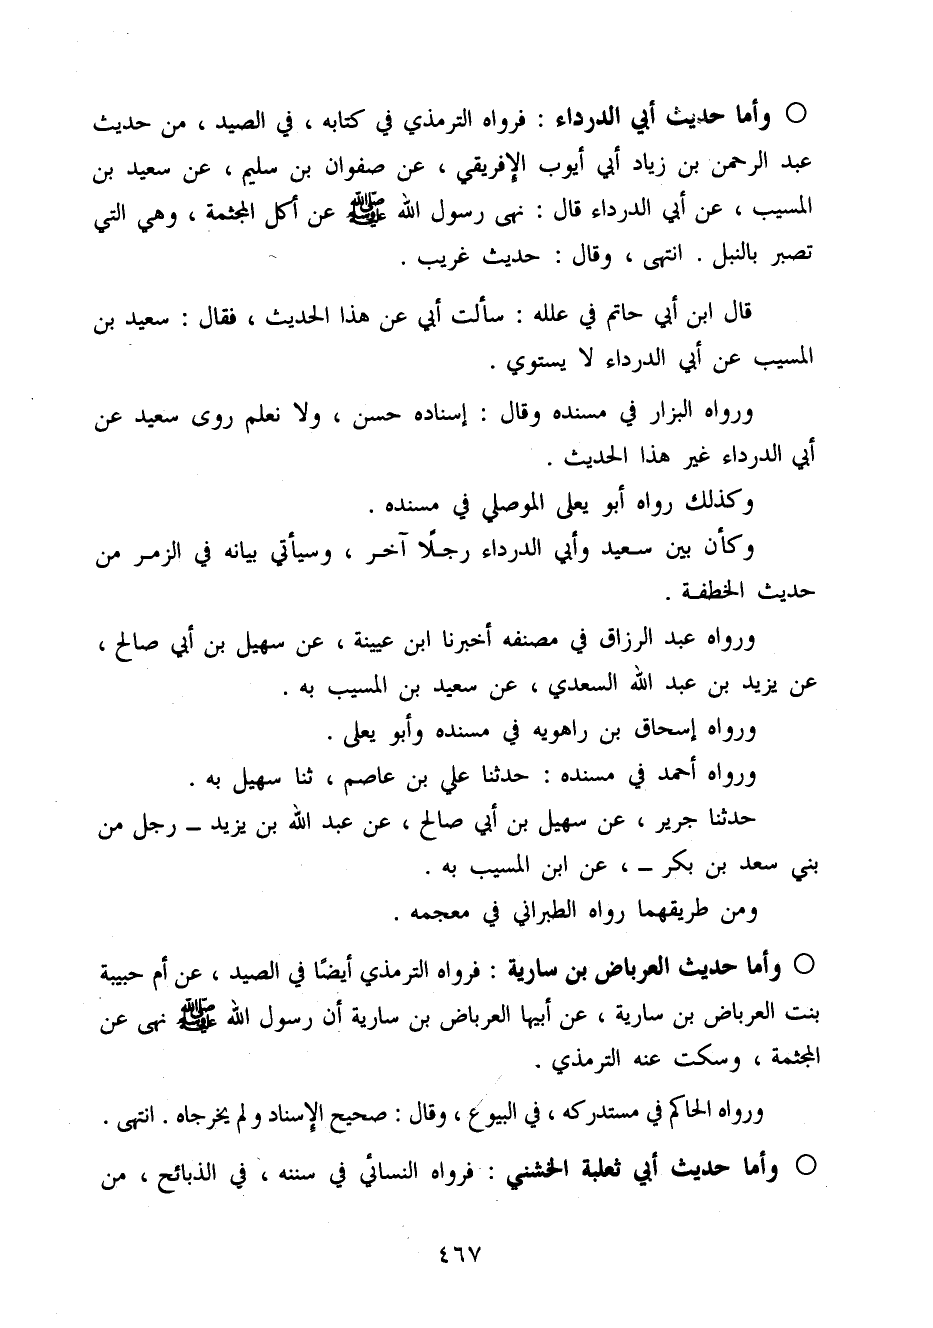 ○ وأما حديث أبي الدرداء : فرواه الترمذي في كتابه ، في الصيد ، من حديث
عبد الرحمن بن زياد أبي أيوب الإفريقي ، عن صفوان بن سليم ، عن سعيد بن
المسيب ، عن أبي الدرداء قال : نهى رسول الله ﷺ عن أكل المجثمة ، وهي التي
تصبر بالنبل . انتهى ، وقال : حديث غريب .
قال ابن أبي حاتم في علله : سألت أبي عن هذا الحديث ، فقال : سعيد بن
المسيب عن أبي الدرداء لا يستوي .
ورواه البزار في مسنده وقال : إسناده حسن ، ولا نعلم روى سعيد عن
أبي الدرداء غير هذا الحديث .
وكذلك رواه أبو يعلى الموصلي في مسنده .
وكأن بين سعيد وأبي الدرداء رجلًا آخر ، وسيأتي بيانه في الزمر من
حديث الخطفة .
ورواه عبد الرزاق في مصنفه أخبرنا ابن عيينة ، عن سهيل بن أبي صالح ،
عن يزيد بن عبد الله السعدي ، عن سعيد بن المسيب به .
ورواه إسحاق بن راهويه في مسنده وأبو يعلى .
ورواه أحمد في مسنده : حدثنا علي بن عاصم ، ثنا سهيل به .
حدثنا جرير ، عن سهيل بن أبي صالح ، عن عبد الله بن يزيد – رجل من
بني سعد بن بكر – ، عن ابن المسيب به .
ومن طريقهما رواه الطبراني في معجمه .
○ وأما حديث العرباض بن سارية : فرواه الترمذي أيضًا في الصيد ، عن أم حبيبة
بنت العرباض بن سارية ، عن أبيها العرباض بن سارية أن رسول الله ﷺ نهى عن
المجثمة ، وسكت عنه الترمذي .
ورواه الحاكم في مستدركه ، في البيوع ، وقال : صحيح الإسناد ولم يخرجاه . انتهى .
○ وأما حديث أبي ثعلبة الخشني : فرواه النسائي في سننه ، في الذبائح ، من
٤٦٧